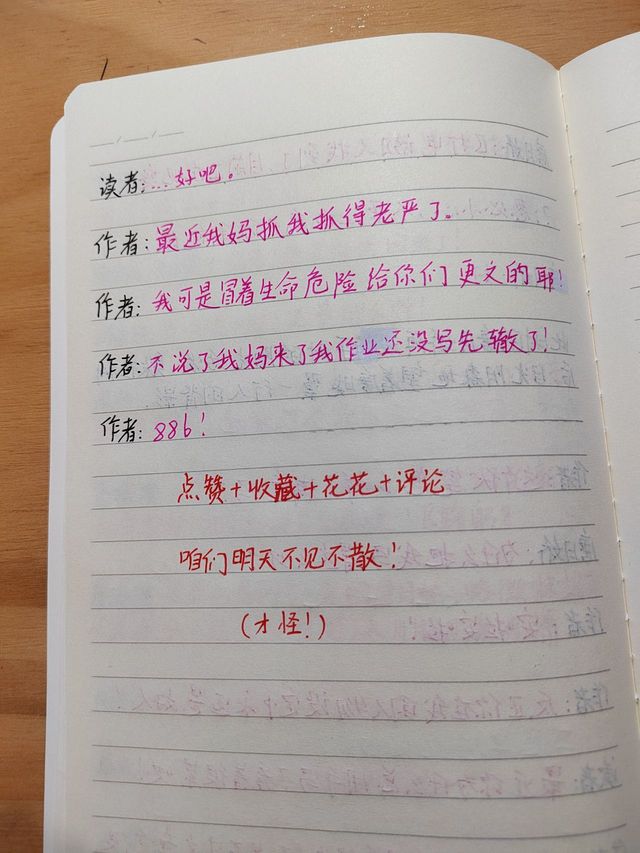 读者:...好吧。
作者:最近我妈抓我抓得老严了。
作者:我可是冒着生命危险给你们更文的耶!
作者:不说了我妈来了我作业还没写先辙了!
作者:886!
点赞+收藏+花花+评论
咱们明天不见不散!
(才怪!)